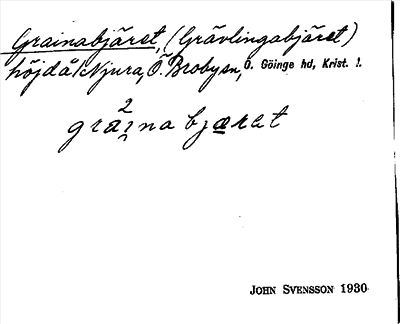 Grainabjäret, (Grävlingabjäret)
höjd å Njura, Ö. Broby sn, Ö. Göinge hd, Krist. l.
2
graina bjæret
JOHN SVENSSON 1930